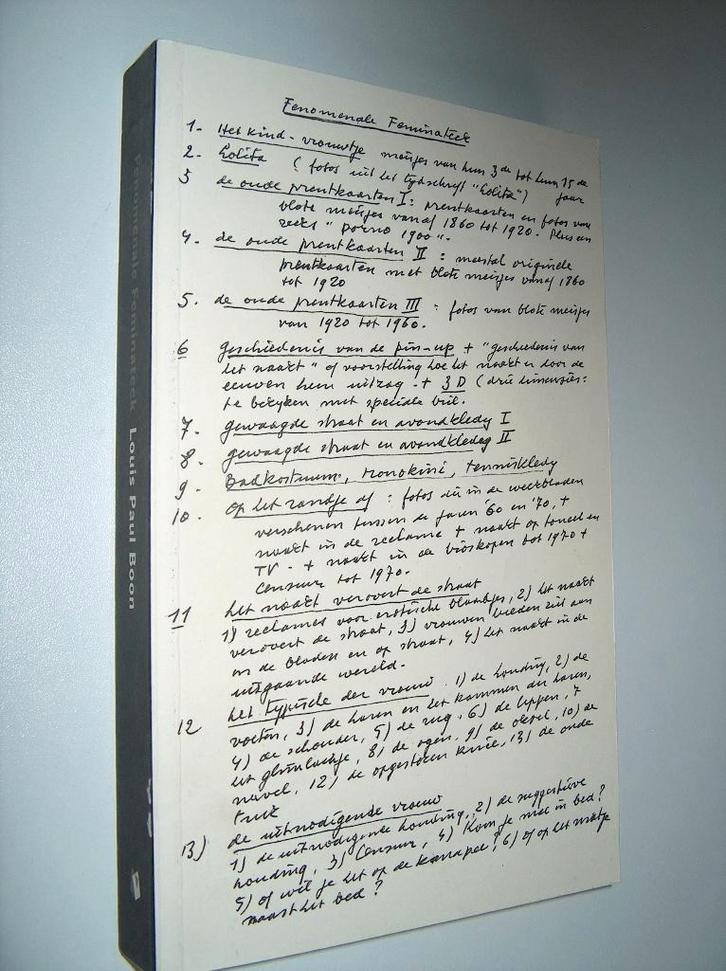 Fenomenale Feminateek Louis Paul Boon
Fenomenale Feminateek
1- Het kind-vrouwtje meisjes van hun 3de tot hun 15de
jaar
2. Lolita (fotos uit het tijdschrift "Lolita")
3 de oude prentkaarten I: prentkaarten en fotos van
blote meisjes vanaf 1860 tot 1920. Plus een
reeks "porno 1900".
4. de oude prentkaarten II: meestal originele
prentkaarten met blote meisjes vanaf 1860
tot 1920
5. de oude prentkaarten III: fotos van blote meisjes
van 1920 tot 1960.
6 geschiedenis van de pin-up + "geschiedenis van
het naakt" of voorstelling hoe het naakt er door de
eeuwen heen uitzag + 3D (drie dimensies:
te bekijken met speciale bril.
7. gewaagde straat en avondkledij I
8. gewaagde straat en avondkledij II
9- Badkostuum, monokini, tenniskledij
10. Op het randje af: fotos die in de weekbladen
verschenen tussen de jaren 60 en '70, +
naakt in de reclame + naakt op toneel en
TV - + naakt in de bioskopen tot 1970 +
Censuur tot 1970.
11 het naakt verovert de straat
1) reclames voor erotische blaadjes, 2) het naakt
verovert de straat, 3) vrouwen bieden zich aan
in de bladen en op straat, 4) het naakt in de
uitgaande wereld.
12 het typische der vrouw. 1) de houding, 2) de
voeten, 3) de haren en het kammen der haren,
4) de schouder, 5) de rug, 6) de lippen, 7
het glimlachje, 8) de ogen, 9) de oksel, 10) de
navel, 12) de opgestoken knie, 13) de oude
truk
13) de uitnodigende vrouw
1) de uitnodigende houding, 2) de suggestieve
houding, 3) Censuur, 4) Kom je mee in bed?
5) of wil je het op de kanapee? 6) of op het matje
naast het bed?